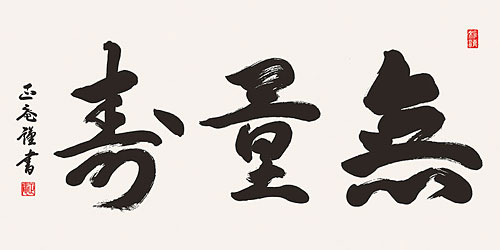 無量壽
正庵謹書